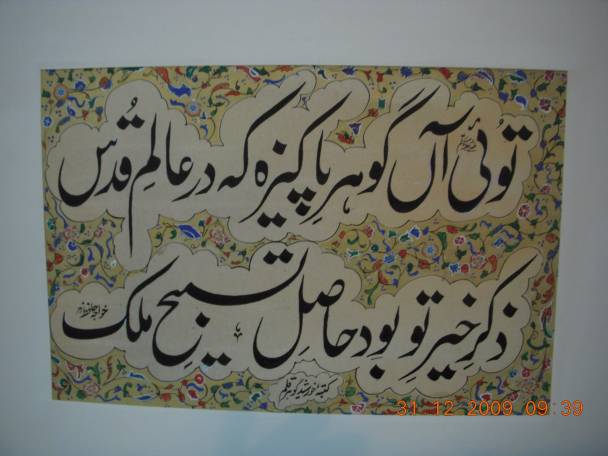 توئی آں گوہرِ پاکیزہ کہ در عالمِ قدس
ذکرِ خیرِ تو بود حاصلِ تسبیحِ ملک
خواجہ حافظ
کتبہ خورشید گوہر قلم
31 12 2009 09:39